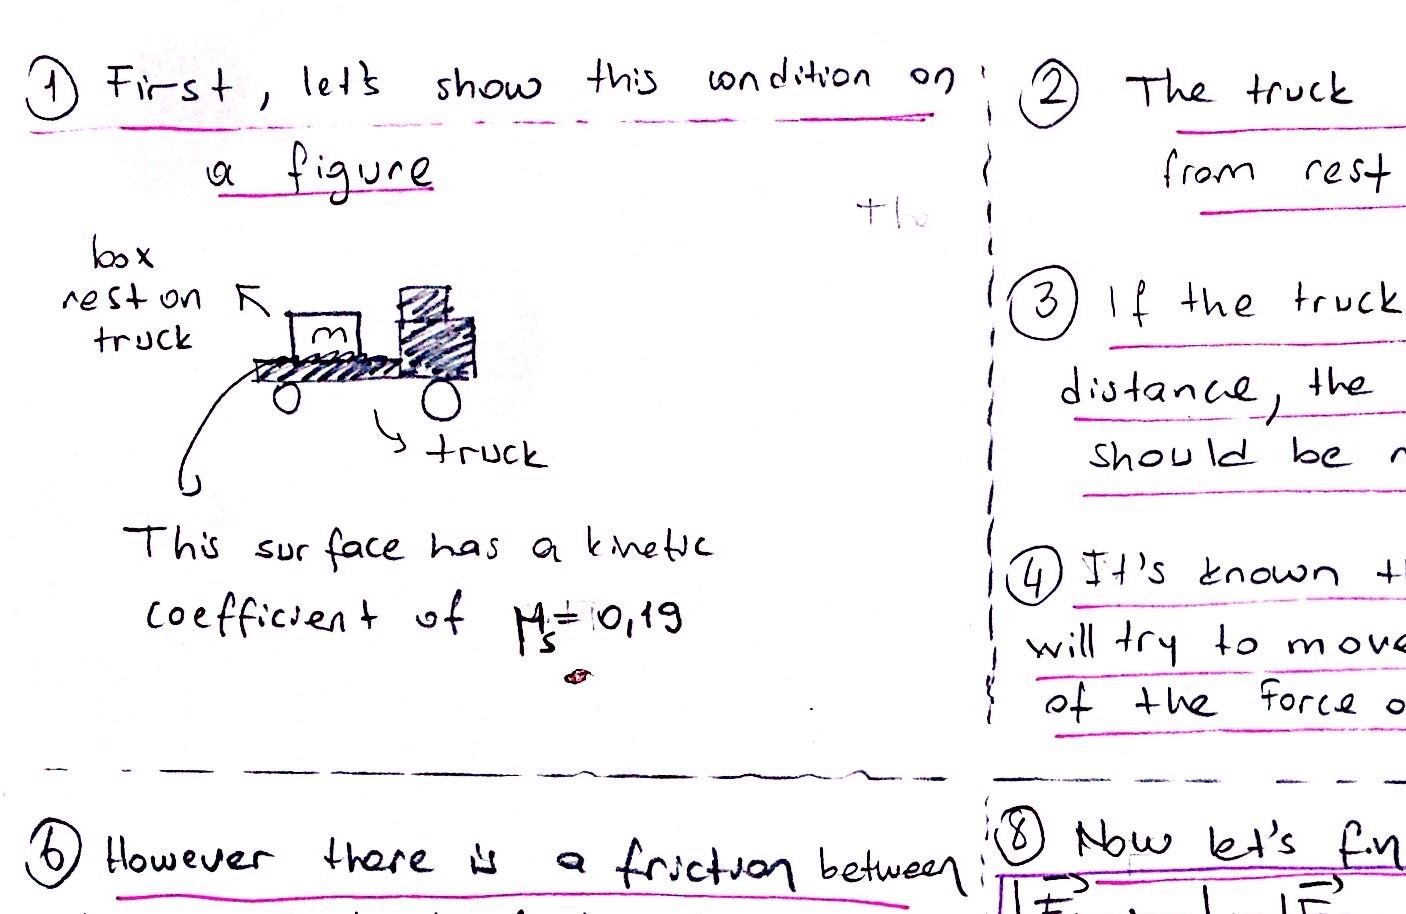 ① First, let's show this condition on
a figure
box
rest on
truck
m
truck
This surface has a kinetic
coefficient of μs = 0,19
② The truck
from rest
③ If the truck
distance, the
should be
④ It's known
will try to move
of the force
⑥ However there is a friction between
⑧ Now let's